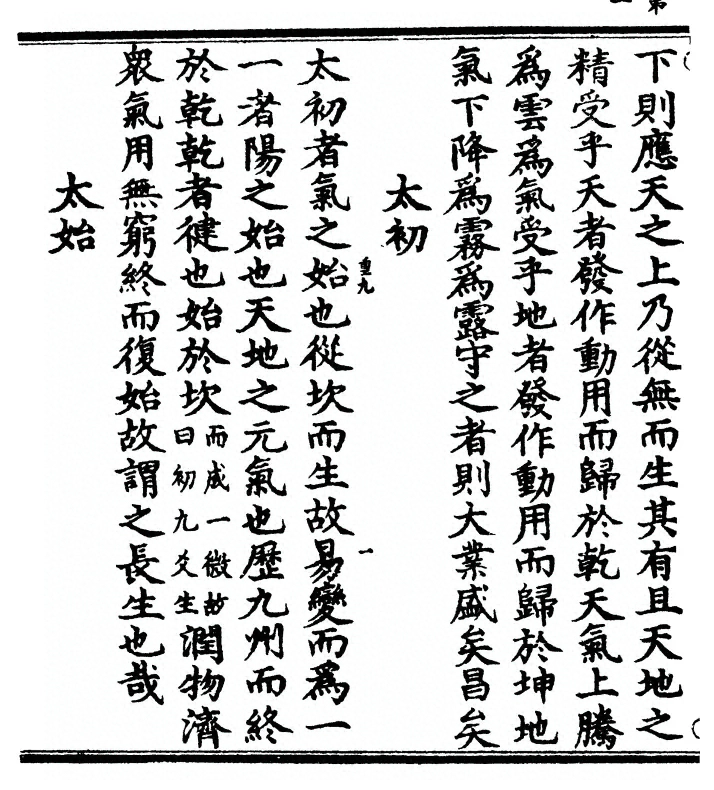 下則應天之上乃從無而生其有且天地之
精受乎天者發作動用而歸於乾天氣上騰
爲雲爲氣受乎地者發作動用而歸於坤地
氣下降爲霧爲露守之者則大業盛矣昌矣
太初
太初者氣之始也從坎而生故易變而爲一
一者陽之始也天地之元氣也歷九州而終
於乾乾者健也始於坎而成一微故曰初九爻生潤物濟
衆氣用無窮終而復始故謂之長生也哉
太始